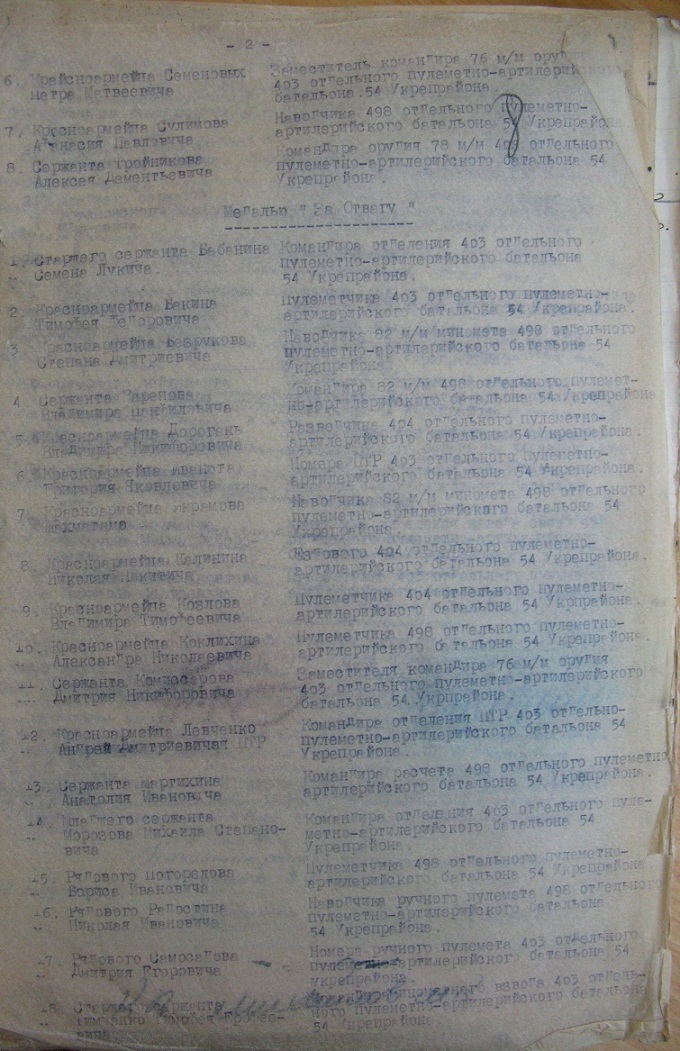 - 2 -
6. Красноармейца Семеновых
Петра Матвеевича
Заместитель командира 76 м/м орудия
403 отдельного пулеметно-артилерийского
батальона 54 Укрепрайона.
7. Красноармейца Сулимова
Афанасия Павловича
Наводчика 498 отдельного пулеметно-
артилерийского батальона 54 Укрепрайона
8. Сержанта Тройникова
Алексея Дементьевича
Командира орудия 78 м/м 403 отдельного
пулеметно-артилерийского батальона 54
Укрепрайона.
Медалью " За Отвагу "
1. Старшего сержанта Бабанина
Семена Лукича.
Командира отделения 403 отдельного
пулеметно-артилерийского батальона
54 Укрепрайона.
2. Красноармейца Бакина
Тимофея Федоровича
Пулеметчика 403 отдельного пулеметно-
артилерийского батальона 54 Укрепрайона.
3. Красноармейца Безрукова
Степана Дмитриевича
Наводчика 82 м/м миномета 498 отдельного
пулеметно-артилерийского батальона 54
Укрепрайона
4. Сержанта
Владимира
Командира 82 м/м 498 отдельного пулемет-
но-артилерийского батальона 54 Укрепрайона
5. Красноармейца Дорогань
Владимира Никифоровича
Разведчика 404 отдельного пулеметно-
артилерийского батальона 54 Укрепрайона.
6. Красноармейца
Григория Яковлевича
Номера ПТР 403 отдельного пулеметно-
артилерийского батальона 54 Укрепрайона.
7. Красноармейца Икрамова
Наводчика 82 м/м миномета 498 отдельного
пулеметно-артилерийского батальона 54
Укрепрайона.
8. Красноармейца Калинина
Николая Никитича
404 отдельного пулеметно-
артилерийского батальона 54 Укрепрайона.
9. Красноармейца Козлова
Владимира Тимофеевича
Пулеметчика 404 отдельного пулеметно-
артилерийского батальона 54 Укрпрайона.
10. Красноармейца Коклихина
Александра Николаевича
Пулеметчика 498 отдельного пулеметно-
артилерийского батальона 54 Укрепрайона.
11. Сержанта Комиссарова
Дмитрия Никифоровича
Заместителя командира 76 м/м орудия
403 отдельного пулеметно-артилерийского
батальона 54 Укрпрайона.
12. Красноармейца Левченко
Андрей Дмитриевичая ПТР
Командира отделения ПТР 403 отдельно-
пулеметно-артилерийского батальона 54
Укрепрайона.
13. Сержанта Мартихина
Анатолия Ивановича
Командира расчета 498 отдельного пулеметно
артилерийского батальона 54 Укрепрайона.
14. Младшего сержанта
Морозова Михаила Степано-
вича
Командира отделения 403 отдельного пуле-
метно-артилерийского батальона 54
Укрепрайона.
15. Рядового Погорелова
Бориса Ивановича
Пулеметчика 498 отдельного пулеметно-
артилерийского батальона 54 Укрепрайона.
16. Рядового Радостина
Николая Ивановича
Наводчика ручного пулемета 498 отдельного
пулеметно-артилерийского батальона
54 Укрепрайона.
17. Рядового Самосадова
Дмитрия Егоровича
Номера ручного пулемета 403 отдельного
пулеметно-артилерийского батальона 54
укрепрайона.
18. Старшего сержанта
Тимченко Тимофея
вича
взвода 403 отдель-
ного пулеметно-артилерийского батальона
54 Укрепрайона.